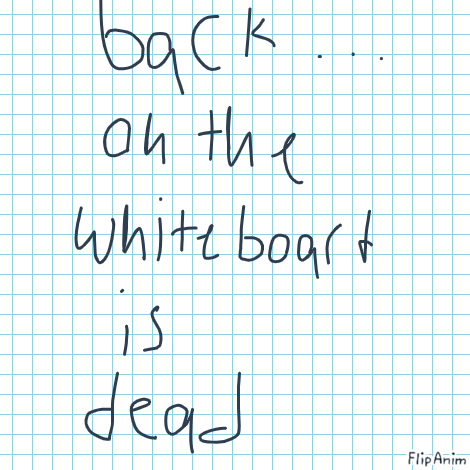 back...
oh the
whiteboard
is
dead
FlipAnim